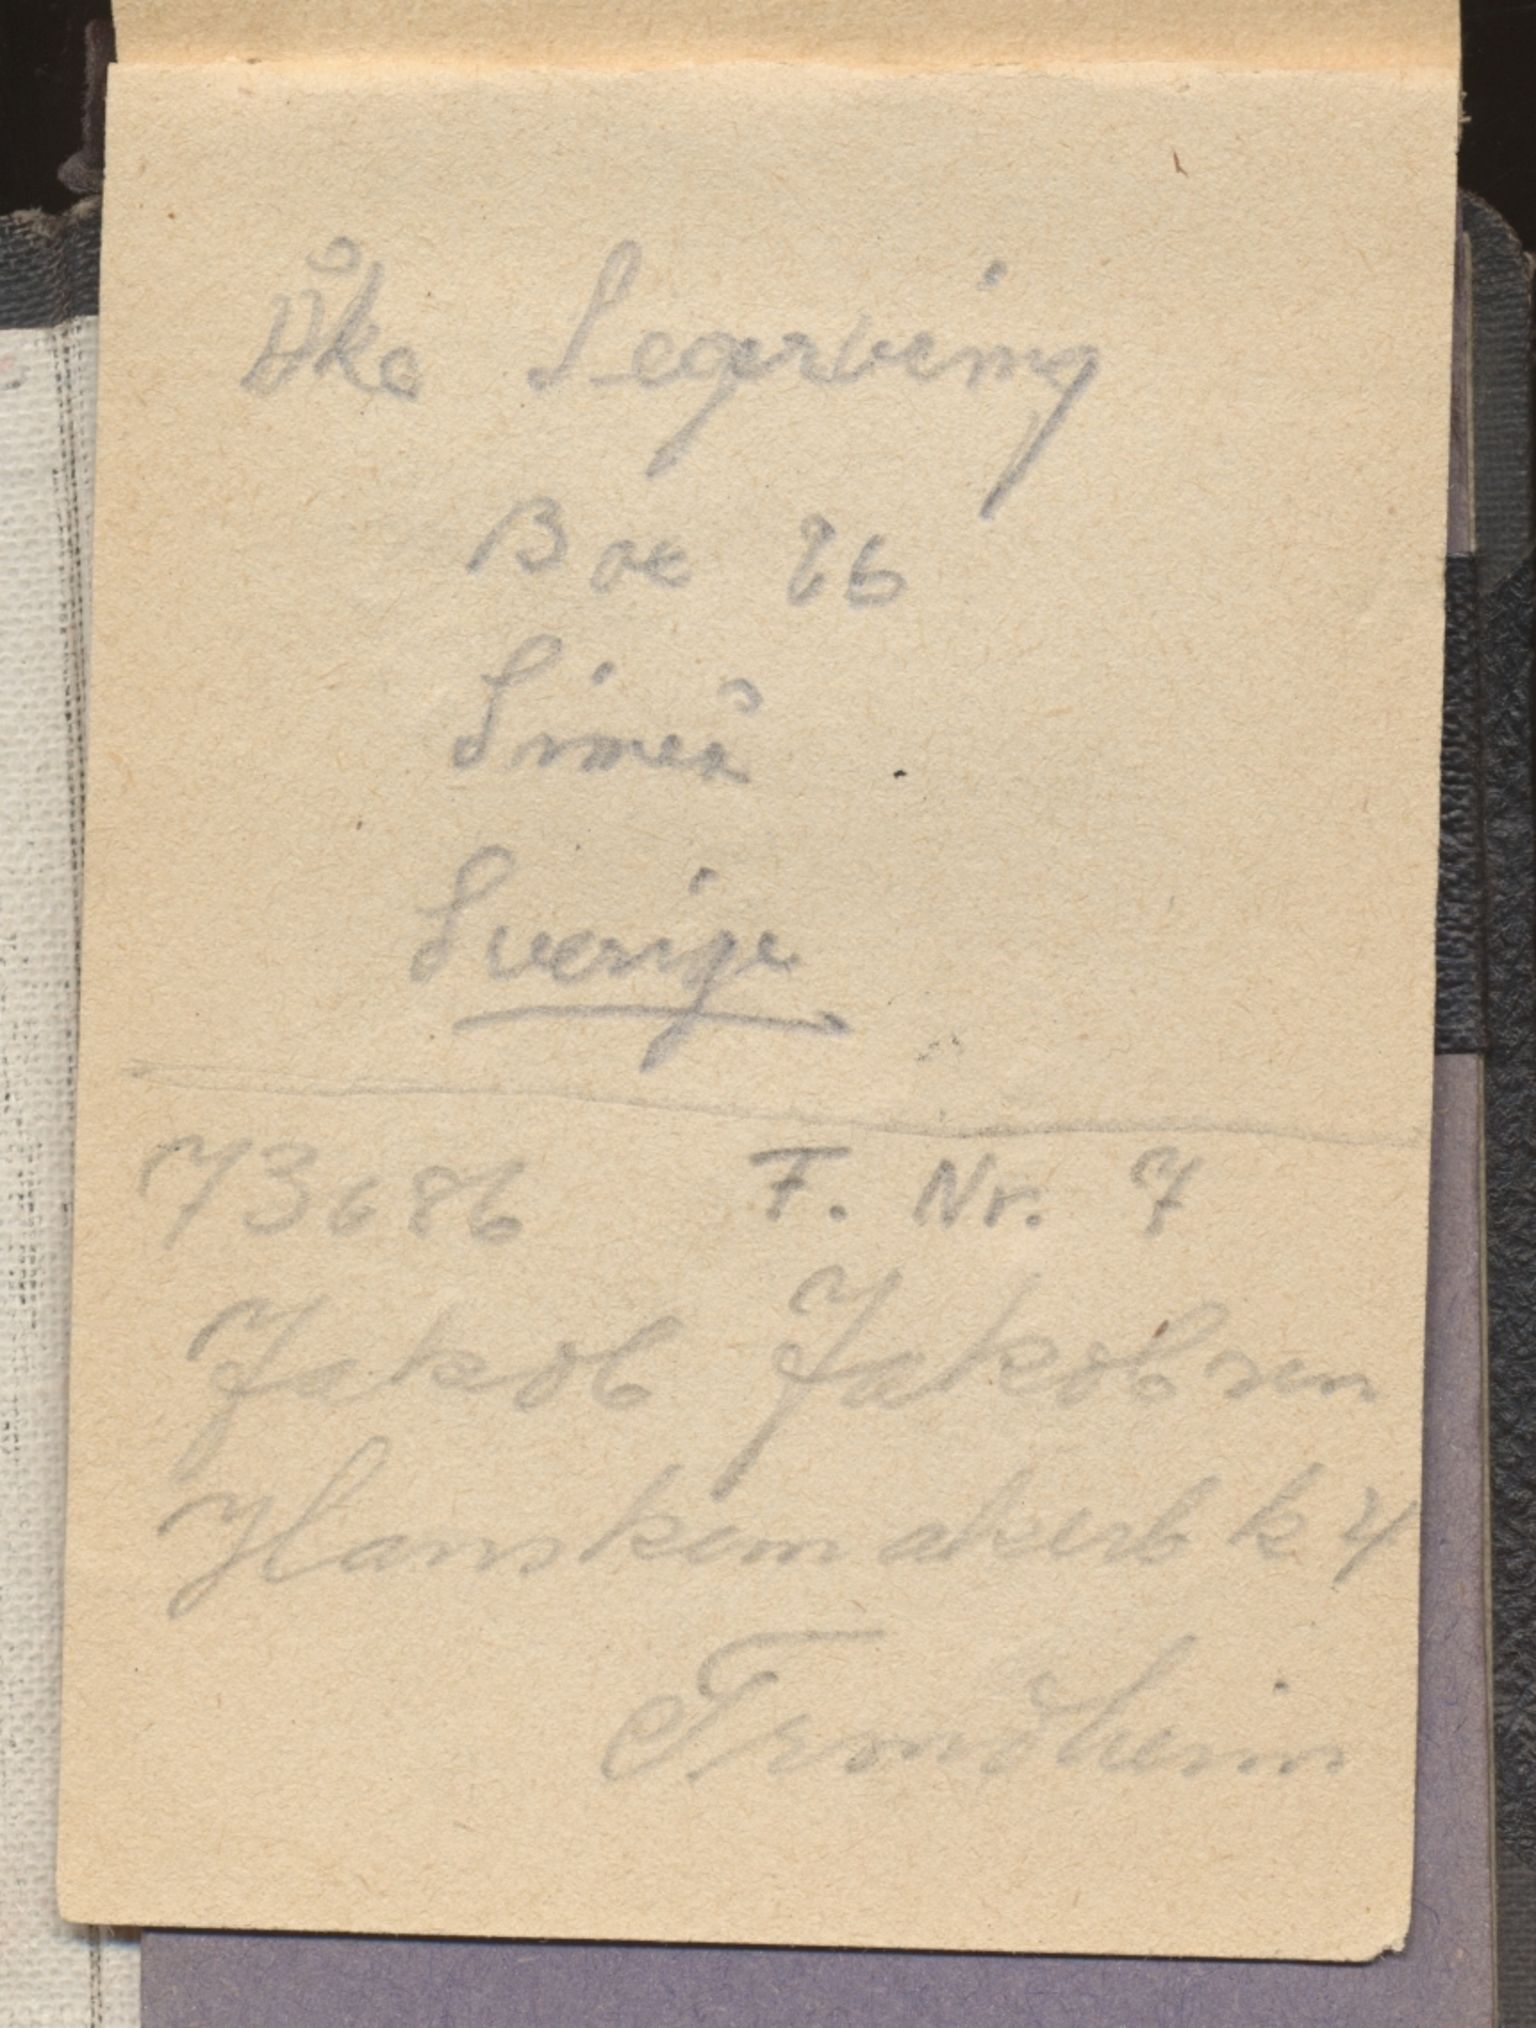 Åke Segerberg
Box 26
Simeå
Sverige
73686 F. Nr. 7
Jakob Jakobsen
Hanskemakerbk 4
Trondheim